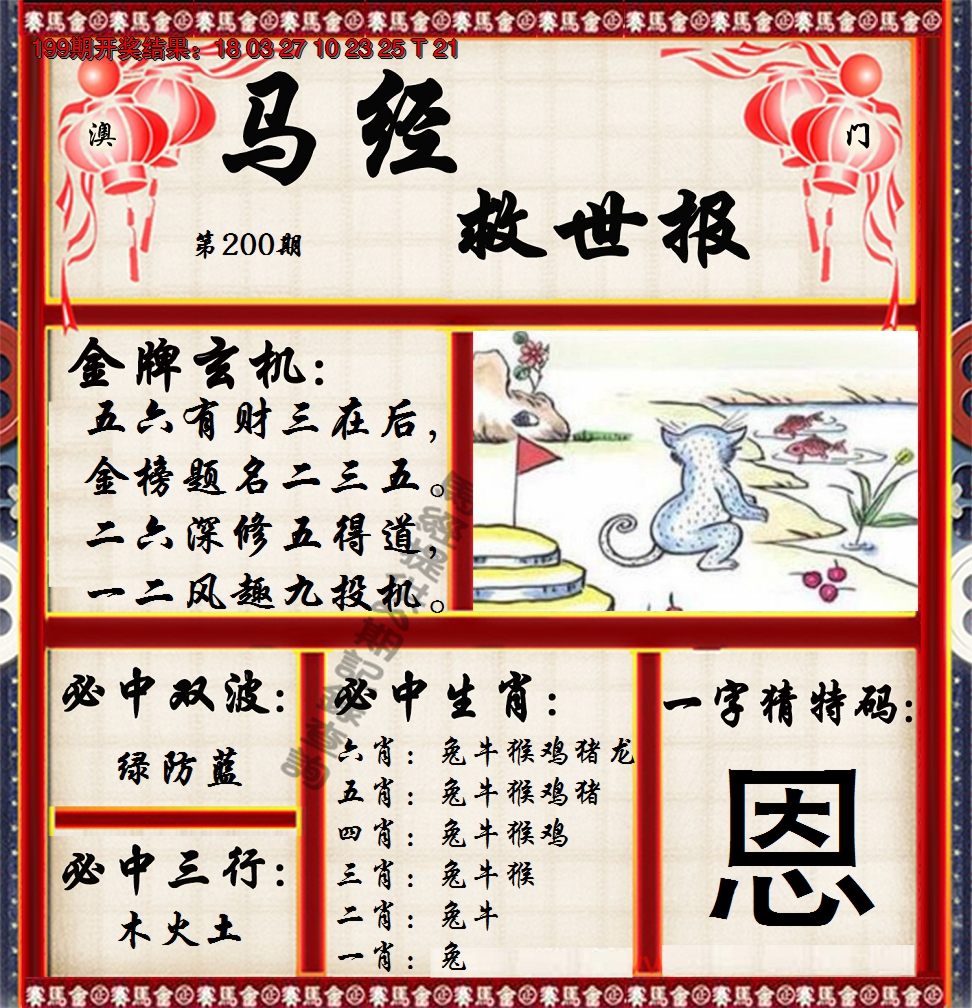 赛馬會㊣赛馬會㊣赛馬會㊣赛馬會㊣赛馬會㊣赛馬會㊣赛馬會㊣
199期开奖结果：18 03 27 10 23 25 T 21
澳
门
马经
救世报
第200期
金牌玄机：
五六有财三在后，
金榜题名二三五。
二六深修五得道，
一二风趣九投机。
必中双波：
绿防蓝
必中三行：
木火土
必中生肖：
六肖：兔牛猴鸡猪龙
五肖：兔牛猴鸡猪
四肖：兔牛猴鸡
三肖：兔牛猴
二肖：兔牛
一肖：兔
一字猜特码：
恩